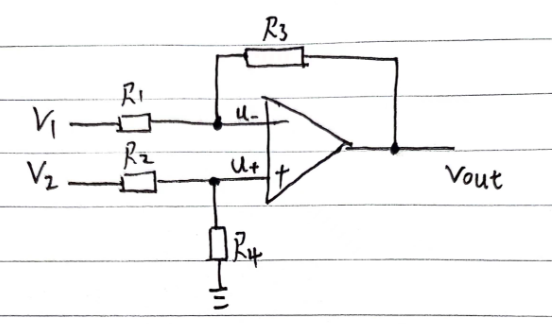 R3
R1
V1
u-
R2
V2
u+
+
Vout
R4